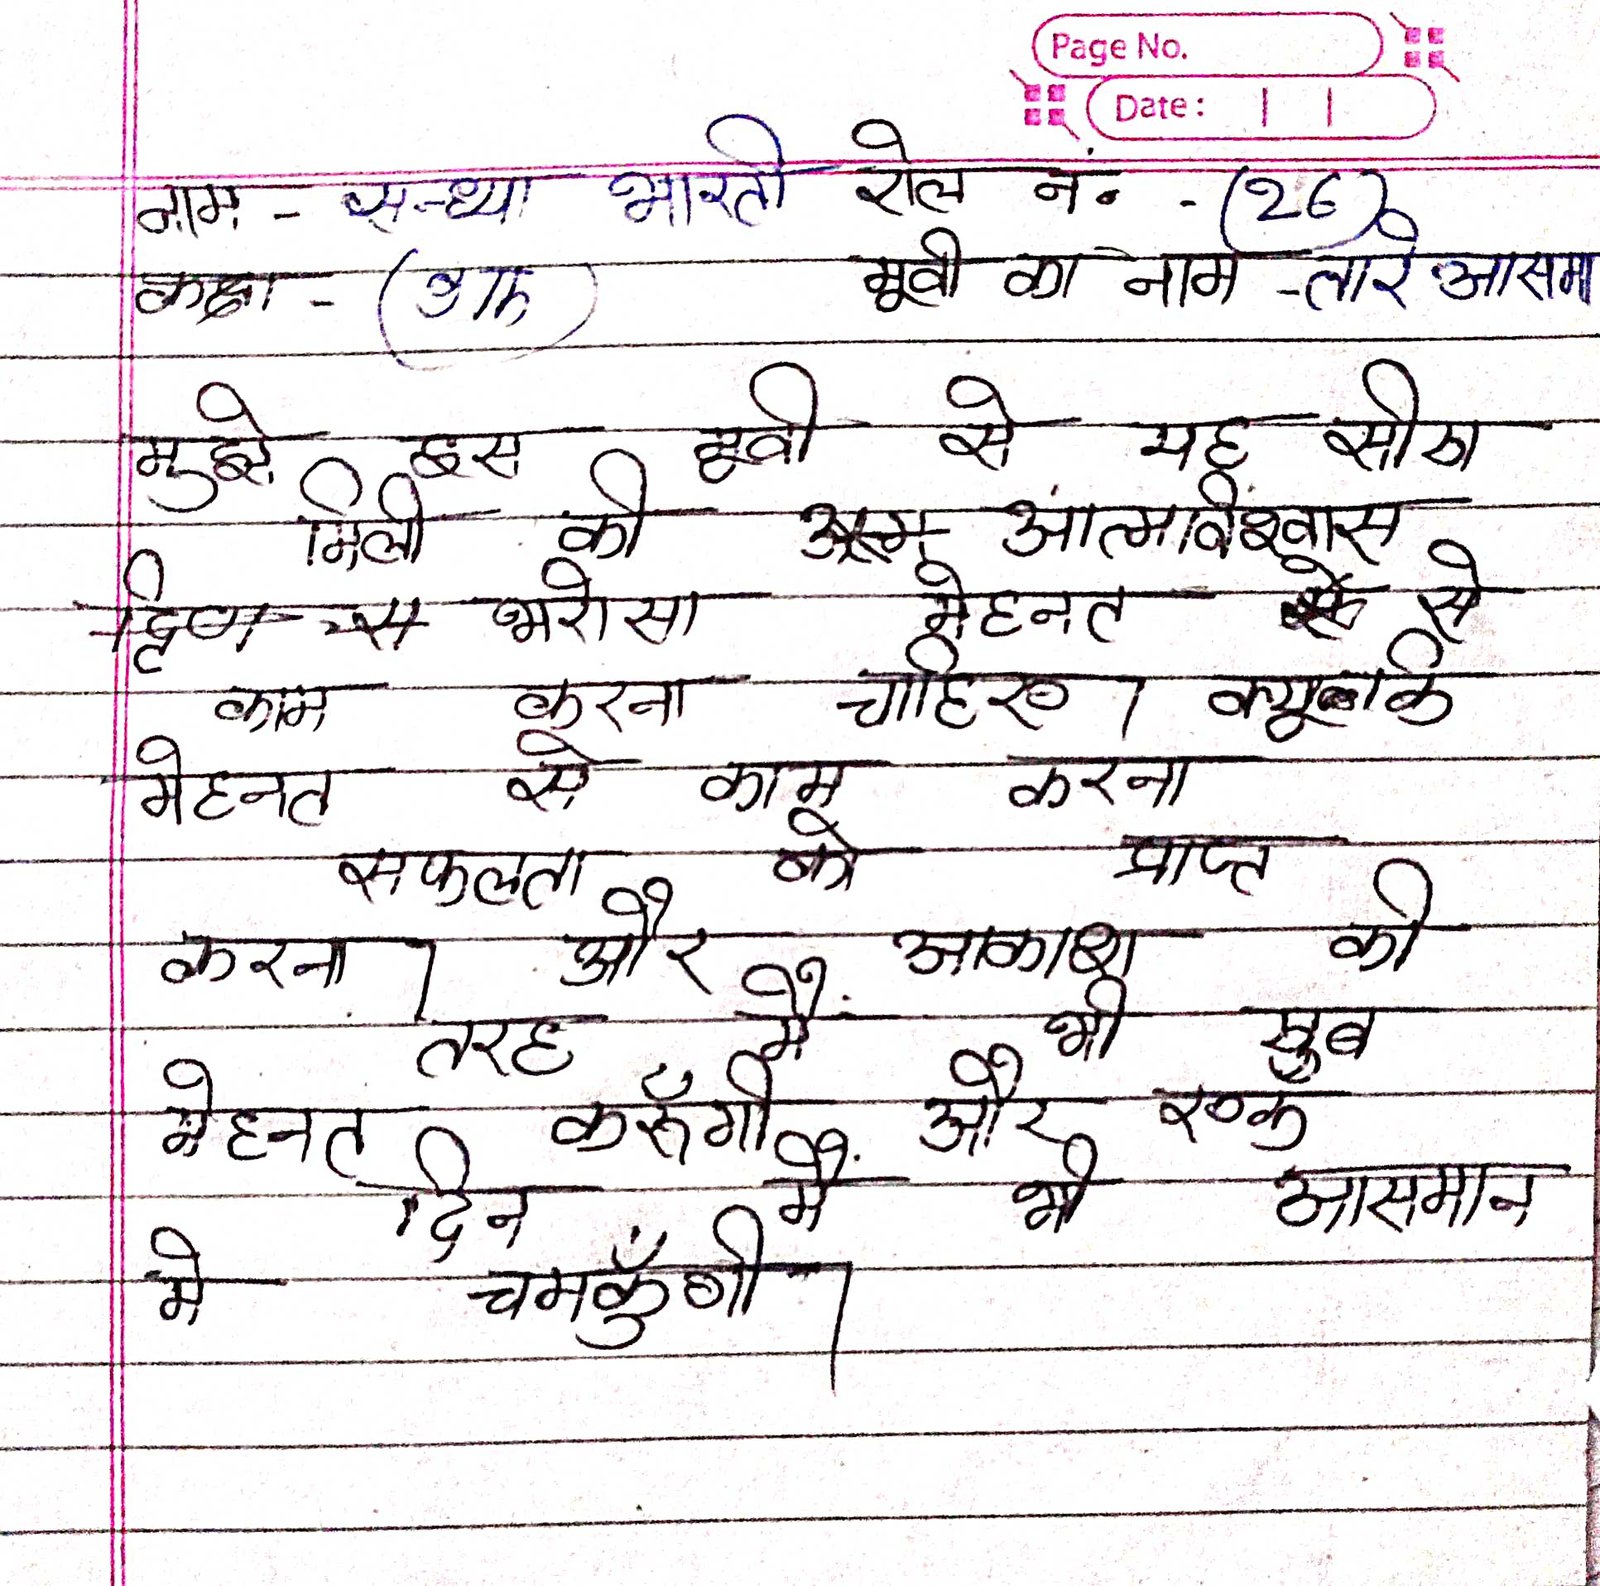 Page No.
Date :
नाम - सन्ध्या भारती रोल नं. - (26)
कक्षा - मूवी का नाम - तारे आसमा
मुझे इस मूवी से यह सीख
मिली की आत्मविश्वास
भरोसा मेहनत से
काम करना चाहिए। क्यूकि
मेहनत से काम करना
सफलता को प्राप्त
करना। और आकाश की
तरह मैं भी खुब
मेहनत करूँगी और एक
दिन मैं भी आसमान
मे चमकुँगी।